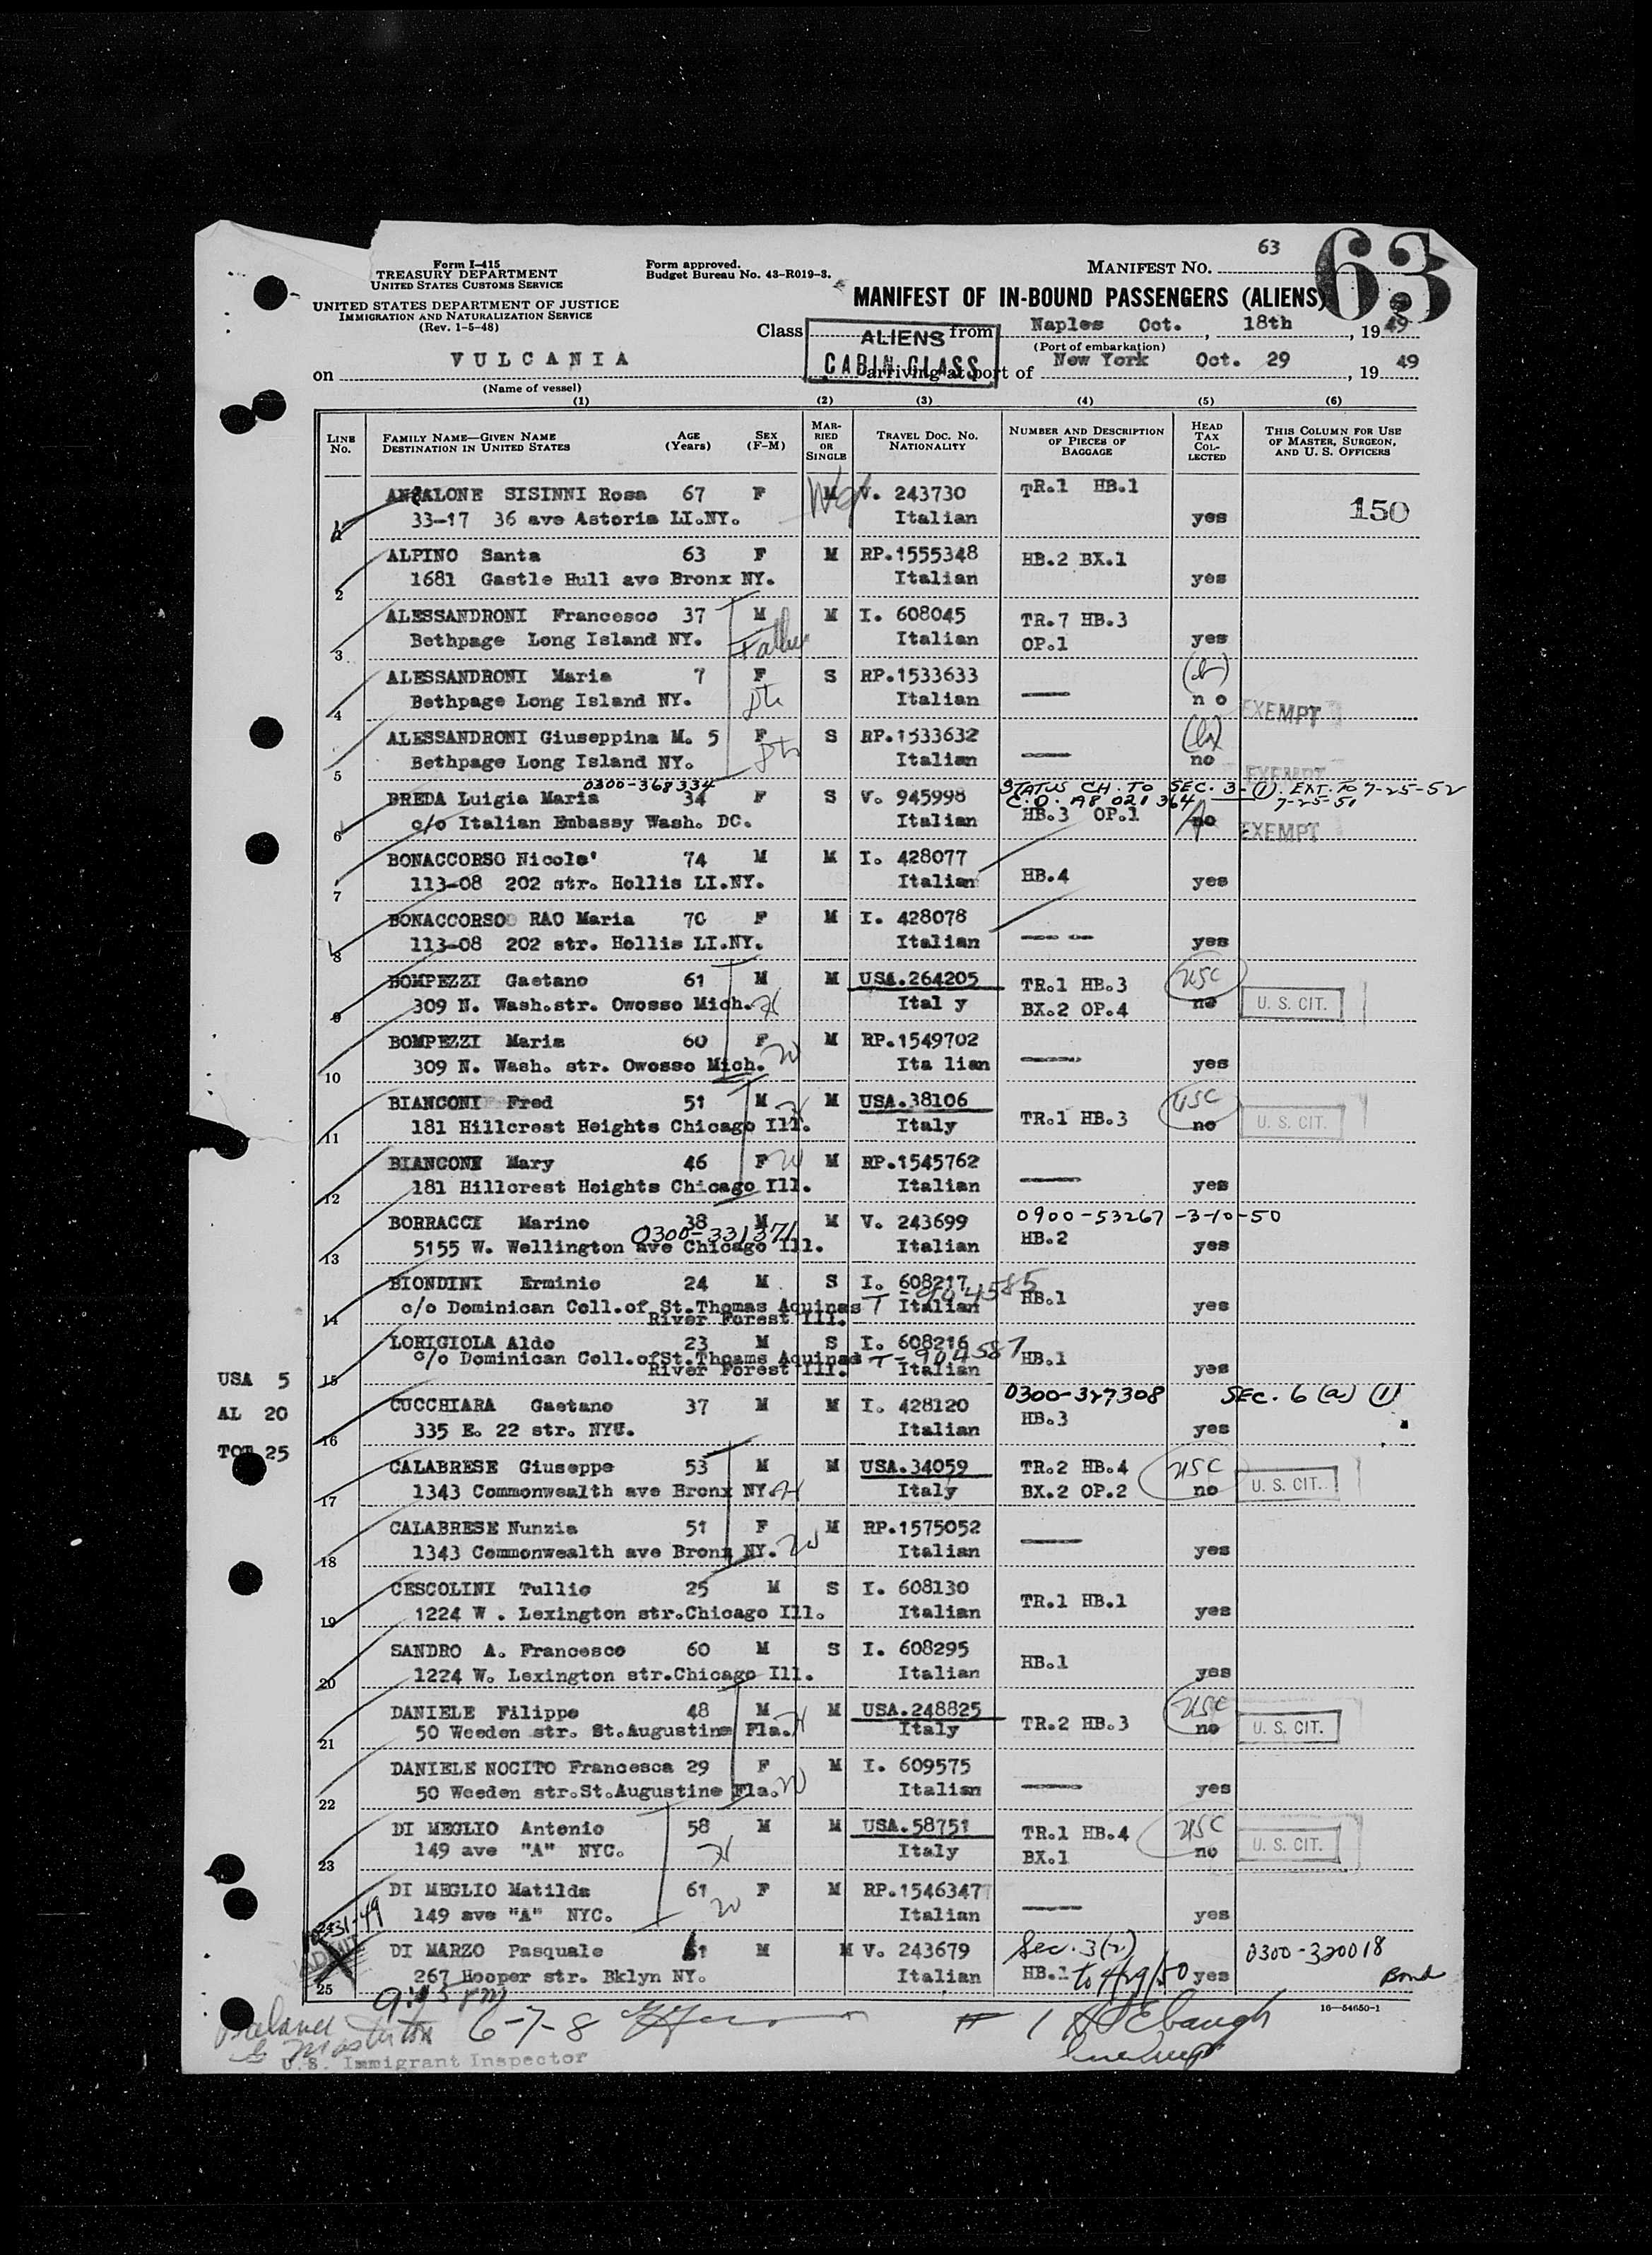 63
63
Form I-415
TREASURY DEPARTMENT
UNITED STATES CUSTOMS SERVICE
UNITED STATES DEPARTMENT OF JUSTICE
IMMIGRATION AND NATURALIZATION SERVICE
(Rev. 1-5-48)
Form approved.
Budget Bureau No. 43-R019-3.
MANIFEST NO.
MANIFEST OF IN-BOUND PASSENGERS (ALIENS)
Class ALIENS from Naples Oct. , 18th , 19 49
CABIN CLASS
(Port of embarkation)
on VULCANIA arriving at port of New York Oct. 29 , 19 49
(Name of vessel)
(1) (2) (3) (4) (5) (6)
LINE No. FAMILY NAME—GIVEN NAME DESTINATION IN UNITED STATES AGE (Years) SEX (F-M) MARRIED OR SINGLE TRAVEL DOC. NO. NATIONALITY NUMBER AND DESCRIPTION OF PIECES OF BAGGAGE HEAD TAX COLLECTED THIS COLUMN FOR USE OF MASTER, SURGEON, AND U. S. OFFICERS
SISINNI Rosa 67 F M V. 243730 TR.1 HB.1
1 33-17 36 ave Astoria LI.NY. Italian yes 150
ALPINO Santa 63 F M RP.1555348 HB.2 BX.1
2 1681 Gastle Hull ave Bronx NY. Italian yes
ALESSANDRONI Francesco 37 M M I. 608045 TR.7 HB.3
3 Bethpage Long Island NY. Father Italian OP.1 yes
ALESSANDRONI Maria 7 F S RP.1533633
4 Bethpage Long Island NY. Italian no EXEMPT
ALESSANDRONI Giuseppina M. 5 F S RP.1533632
5 Bethpage Long Island NY. Italian no EXEMPT
0300-368334 STATUS CH. TO SEC. 3-(1). EXT. TO 7-25-52
BREDA Luigia Maria 34 F S V. 945998 C.O. A8 021 364 7-25-51
6 c/o Italian Embassy Wash. DC. Italian HB.3 OP.1 no EXEMPT
BONACCORSO Nicola' 74 M M I. 428077
7 113-08 202 str. Hollis LI.NY. Italian HB.4 yes
BONACCORSO RAO Maria 70 F M I. 428078
8 113-08 202 str. Hollis LI.NY. Italian yes
BOMPEZZI Gaetano 61 M M USA.264205 TR.1 HB.3 USC
9 309 N. Wash.str. Owosso Mich. H Ital y BX.2 OP.4 no U. S. CIT.
BOMPEZZI Maria 60 F M RP.1549702
10 309 N. Wash. str. Owosso Mich. W Ita lian yes
BIANCONI Fred 51 M M USA.38106 USC
11 181 Hillcrest Heights Chicago Ill. H Italy TR.1 HB.3 no U. S. CIT.
BIANCONI Mary 46 F W M RP.1545762
12 181 Hillcrest Heights Chicago Ill. Italian yes
BORRACCI Marino 38 M M V. 243699 0900-53267 -3-10-50
0300-331371
13 5155 W. Wellington ave Chicago Ill. Italian HB.2 yes
BIONDINI Erminio 24 M S I. 608217
T-904585
14 c/o Dominican Coll.of St.Thomas Aquinas Italian HB.1 yes
River Forest Ill.
LORIGIOLA Aldo 23 M S I. 608216
c/o Dominican Coll.ofSt.Thoams Aquinas T-904587 HB.1
15 River Forest Ill. Italian yes
CUCCHIARA Gaetano 37 M M I. 428120 0300-327308 SEC. 6 (a) (1)
16 335 E. 22 str. NYC. Italian HB.3 yes
USA 5
AL 20
TOT 25
CALABRESE Giuseppe 53 M M USA.34059 TR.2 HB.4 USC
17 1343 Commonwealth ave Bronx NY. H Italy BX.2 OP.2 no U. S. CIT.
CALABRESE Nunzia 51 F M RP.1575052
18 1343 Commonwealth ave Bronx NY. W Italian yes
CESCOLINI Tullio 25 M S I. 608130
19 1224 W . Lexington str.Chicago Ill. Italian TR.1 HB.1 yes
SANDRO A. Francesco 60 M S I. 608295
20 1224 W. Lexington str.Chicago Ill. Italian HB.1 yes
DANIELE Filippo 48 M M USA.248825 USC
21 50 Weeden str. St.Augustine Fla. H Italy TR.2 HB.3 no U. S. CIT.
DANIELE NOCITO Francesca 29 F M I. 609575
22 50 Weeden str.St.Augustine Fla. W Italian yes
DI MEGLIO Antonio 58 M M USA.58751 TR.1 HB.4 USC
23 149 ave "A" NYC. H Italy BX.1 no U. S. CIT.
DI MEGLIO Matilda 61 F M RP.1546347
24 149 ave "A" NYC. W Italian yes
DI MARZO Pasquale M M V. 243679 Sec. 3(2) 0300-320018
25 267 Hooper str. Bklyn NY. Italian HB.1 to 4/29/50 yes Bond
16—54650-1
6-7-8
U.S. Immigrant Inspector